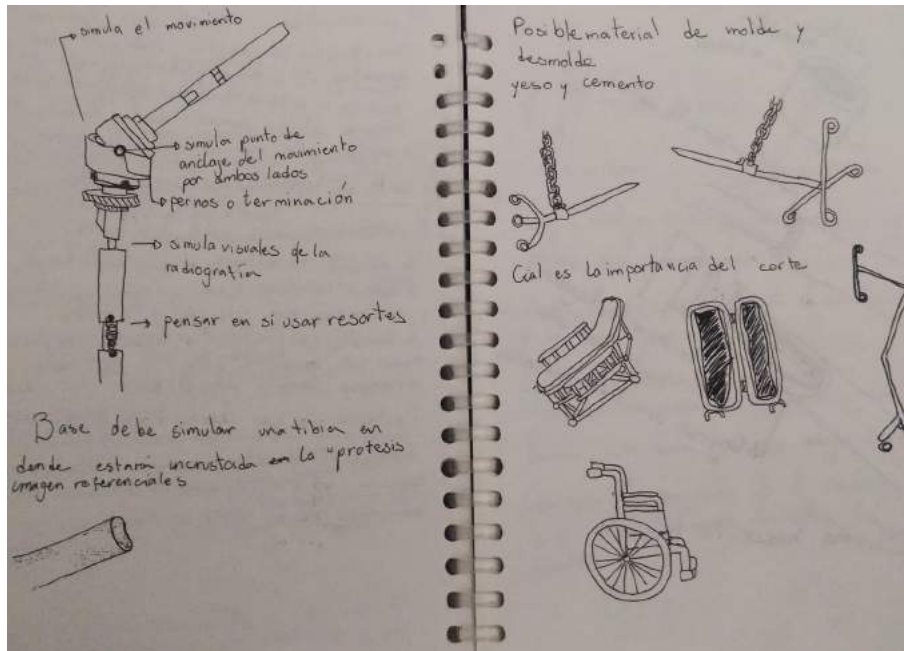 simula el movimiento
simula punto de
anclaje del movimiento
por ambos lados
pernos o terminación
simula visuales de la
radiografía
pensar en si usar resortes
Base debe simular una tibia en
donde estará incrustada en la "protesis
imagen referenciales
Posible material de molde y
desmolde
yeso y cemento
Cual es la importancia del corte